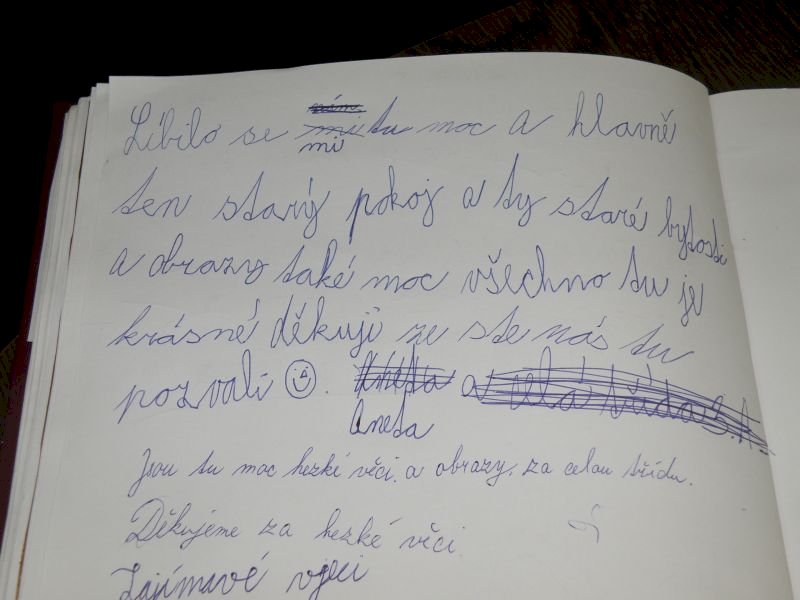 Líbilo se mi tu moc a hlavně
mi
ten starý pokoj a ty staré bytosti
a obrazy také moc všechno tu je
krásné děkuji ze ste nás tu
pozvali ☺. Aneta a celá třída 3.A.
Aneta
Jsou tu moc hezké věci. a obrazy. za celou třídu.
Děkujeme za hezké věci
Zajímavé vjeci